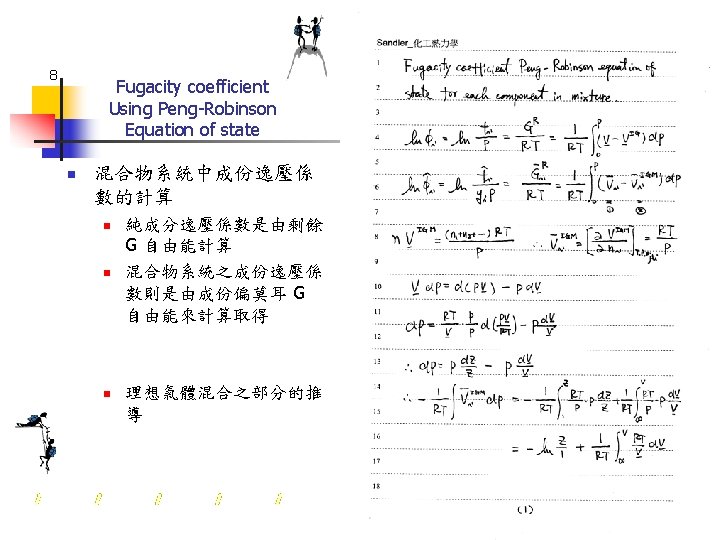 8
Fugacity coefficient
Using Peng-Robinson
Equation of state
混合物系統中成份逸壓係
數的計算
純成分逸壓係數是由剩餘
G 自由能計算
混合物系統之成份逸壓係
數則是由成份偏莫耳 G
自由能來計算取得
理想氣體混合之部分的推
導
Sandler_化工熱力學
1 Fugacity coefficient Peng-Robinson equation of
2 state for each component in mixture.
3
4 ln ϕ = ln f/P = G^R/RT = 1/RT ∫_0^P (V − V^IG) dP
5
6 ln ϕ̂ = ln f̂/yP = Ḡ^R/RT = 1/RT ∫ (V̄ − V̄^IGM) dP
① ②
7
8 n V^IGM = (n₁+n₂+⋯) RT / P ∴ V̄^IGM = [∂ V^IGM / ∂n] = RT/P
9
10 V dP = d(PV) − P dV
11 dP = RT/V P/P d(PV/RT) − P/V dV
12
13 ∴ dP = P dZ/Z − P dV/V
14 ∴ − 1/RT ∫ V̄^IGM dP = − 1/RT ∫ RT/P · P dZ/Z + 1/RT ∫ RT/P · P dV/V
15
16 = − ln Z/1 + 1/RT ∫_∞^V RT/V dV
17
18
(1)